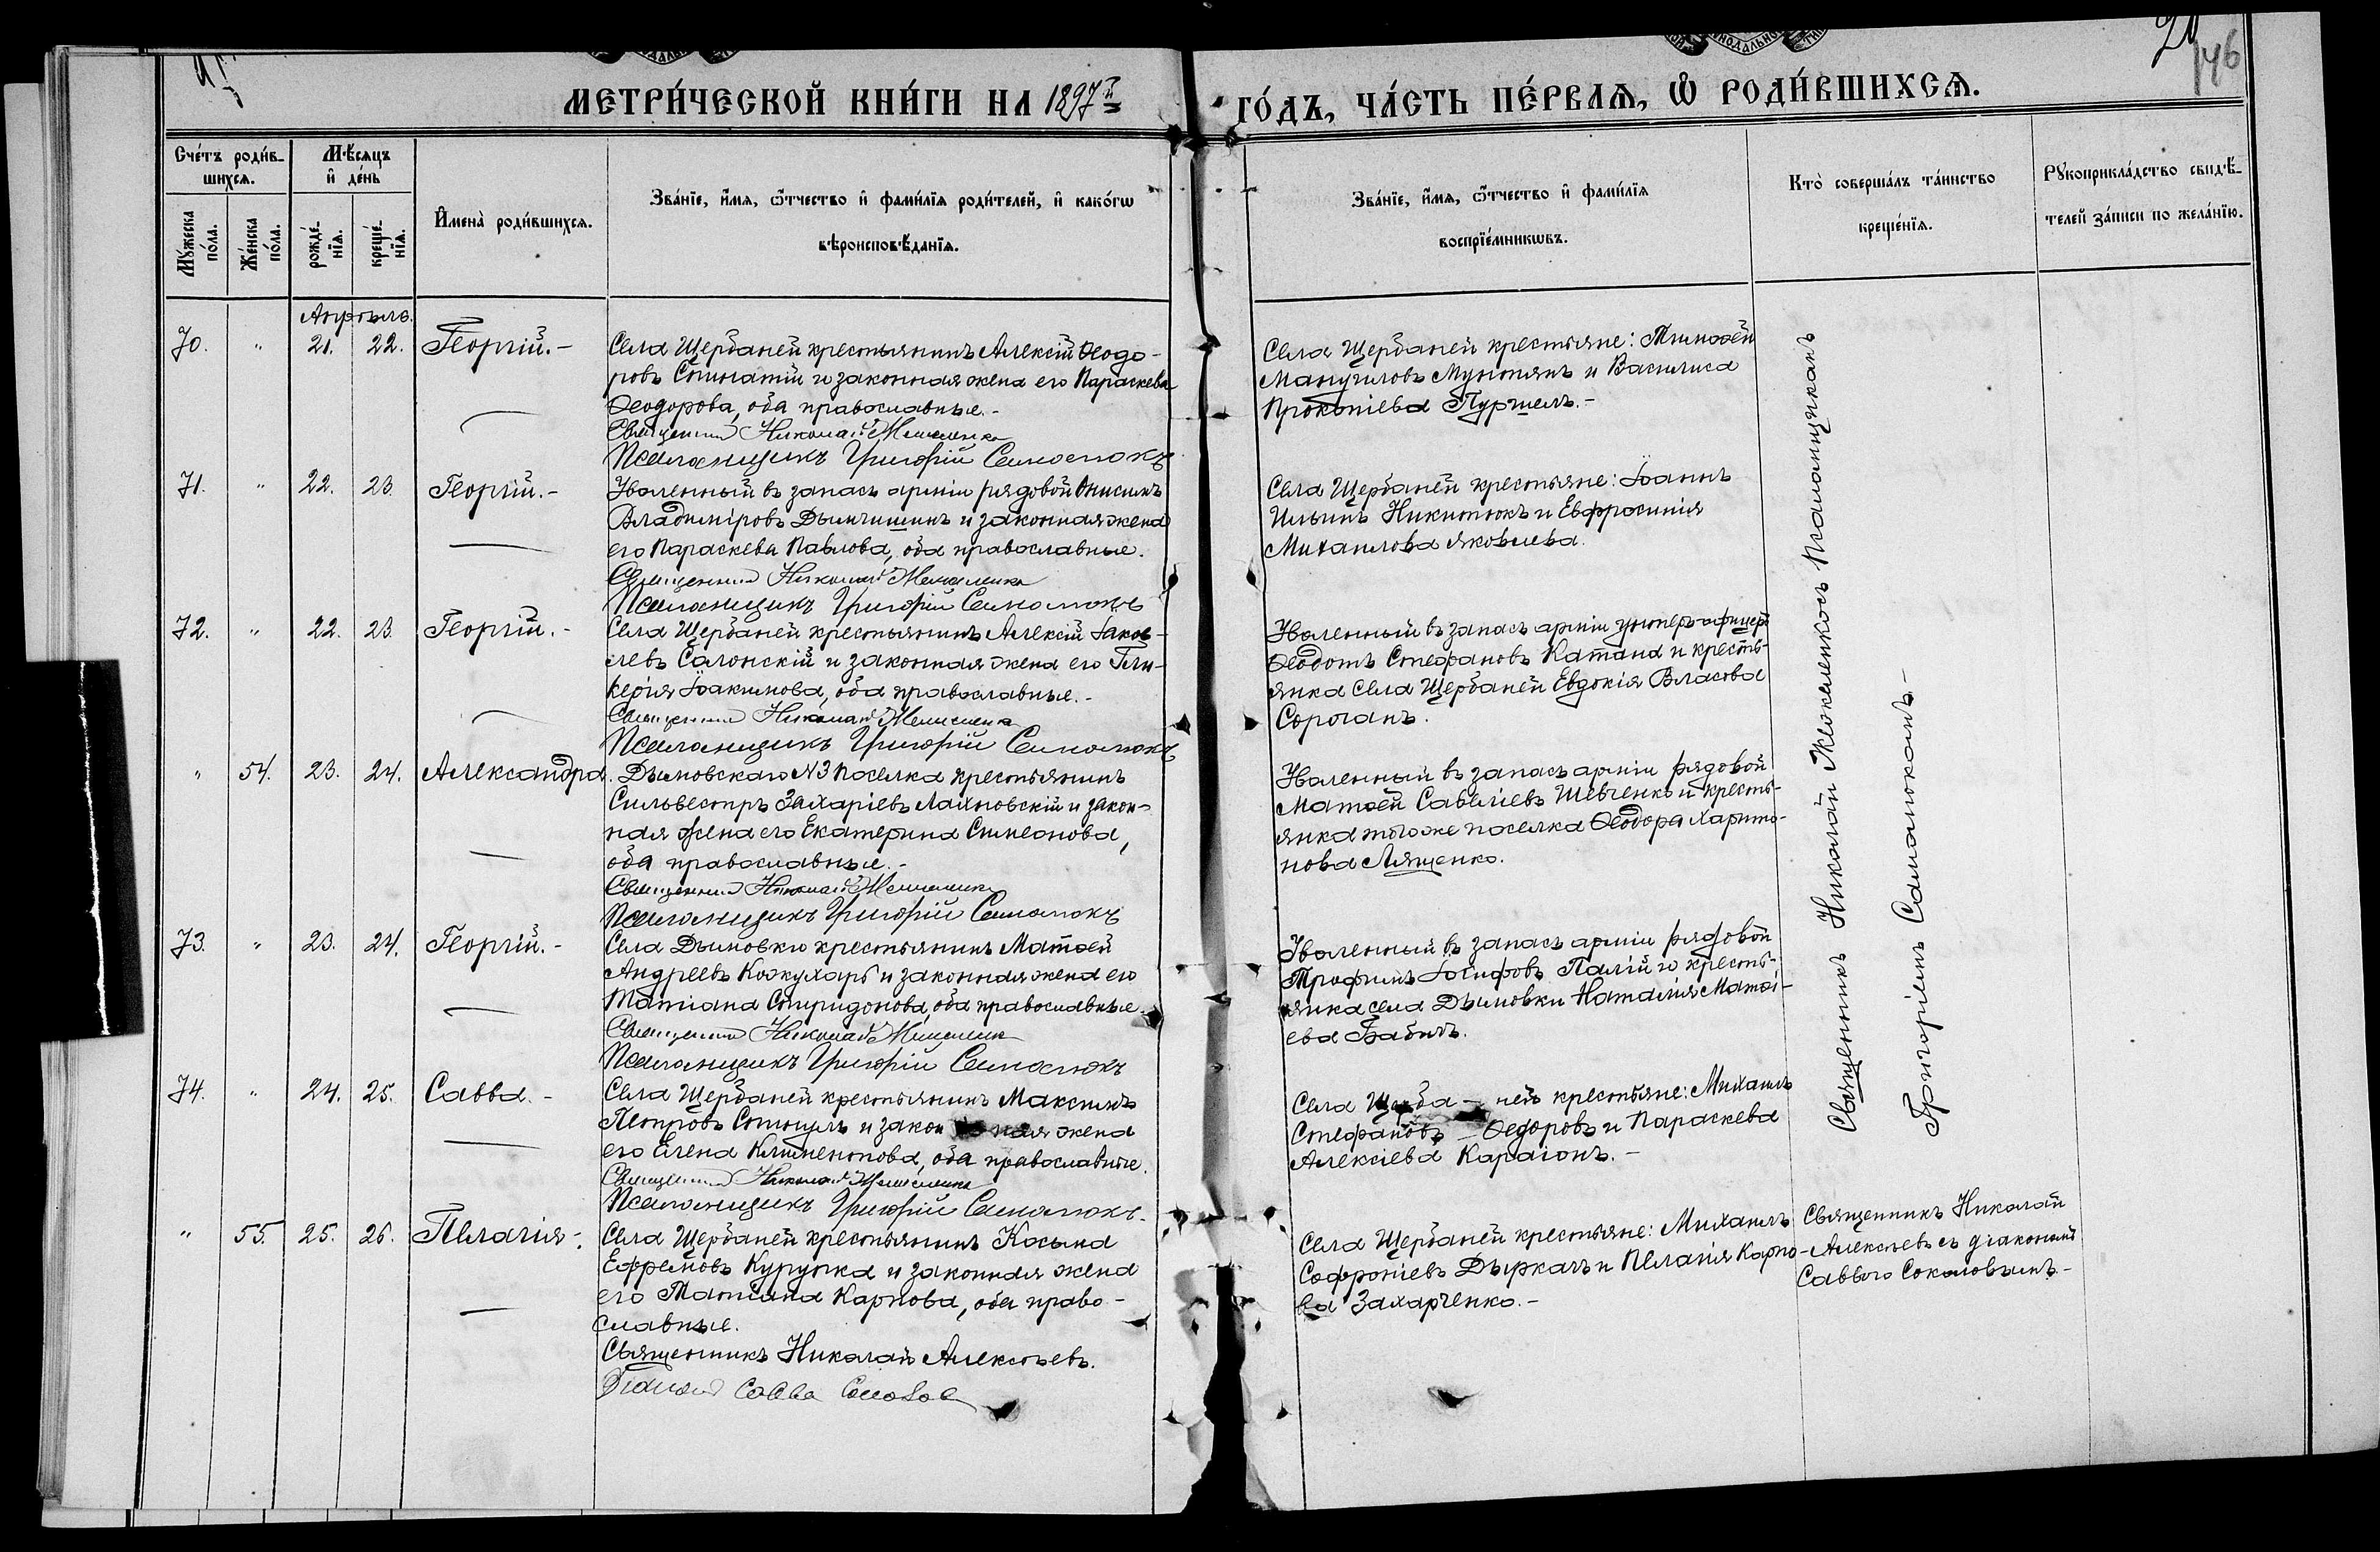 146
МЕТРИ́ЧЕСКОЙ КНИ́ГИ НА 1897й
ГО́ДЪ, ЧА́СТЬ ПЕ́РВАѦ, Ѡ РОДИ́ВШИХСѦ.
Сче́тъ роди́в-
шихсѧ.
Мꙋ́жеска по́ла.
Же́нска по́ла.
Мѣ́сяцъ и҆ де́нь
рожде́нїѧ.
креще́нїѧ.
И҆мена̀ роди́вшихсѧ.
Зва́нїе, и҆́мѧ, ѻ҆́тчество и҆ фами́лїѧ роди́телей, и҆ како́гѡ
вѣроисповѣ́данїѧ.
Зва́нїе, и҆́мѧ, ѻ҆́тчество и҆ фами́лїѧ
воспрїе́мникѡвъ.
Кто̀ соверша́лъ та́инство
креще́нїѧ.
Рꙋкоприкла́дство свидѣ́-
телей за́писи по жела́нїю.
Апрѣль.
70. " 21. 22. Георгій.-
Села Щербаней крестьянинъ Алексій Ѳеодо-
ровъ Спинатій и законная жена его Параскева
Ѳеодорова, оба православные.-
Священникъ Николай
Псаломщикъ Григорій Самотокъ
Села Щербаней крестьяне: Тимоѳей
Мануиловъ Мунтянъ и Василиса
Прокопіева Пуршелъ.-
71. " 22. 23. Георгій.-
Уволенный въ запасъ арміи рядовой Онисимъ
Владиміровъ Дымчишинъ и законная жена
его Параскева Павлова, оба православные.
Священникъ Николай
Псаломщикъ Григорій Самотокъ
Села Щербаней крестьяне: Іоаннъ
Ильинъ Никитюкъ и Евфросинія
Михаилова Яковлева.
72. " 22. 23. Георгій.-
Села Щербаней крестьянинъ Алексій Іаков-
левъ Салонскій и законная жена его Гли-
керія Іоакимова, оба православные.-
Священникъ Николай
Псаломщикъ Григорій Самотокъ
Уволенный въ запасъ арміи унтеръ-офицеръ
Ѳеодотъ Стефановъ Катана и кресть-
янка села Щербаней Евдокія Власова
Сороганъ.
" 54. 23. 24. Александра.
Дымовскаго N3 поселка крестьянинъ
Сильвестръ Захаріевъ Лахновскій и закон-
ная жена его Екатерина Симеонова,
оба православные.-
Священникъ Николай
Псаломщикъ Григорій Самотокъ
Уволенный въ запасъ арміи рядовой
Матѳей Савеліевъ Шевченко и кресть-
янка того же поселка Ѳеодора Харито-
нова Лященко.
73. " 23. 24. Георгій.-
Села Дымовки крестьянинъ Матѳей
Андреевъ Кожухарь и законная жена его
Татіана Спиридонова, оба православные.
Священникъ Николай
Псаломщикъ Григорій Самотокъ
Уволенный въ запасъ арміи рядовой
Трофимъ Іосифовъ Палій и кресть-
янка села Дымовки Наталія Матѳі-
ева Бабичъ.
74. " 24. 25. Савва.-
Села Щербаней крестьянинъ Максимъ
Петровъ Стинулъ и закон ная жена
его Елена Климентова, оба православные.
Священникъ Николай
Псаломщикъ Григорій Самотокъ.
Села Щерба - ней крестьяне: Михаилъ
Стефановъ - Ѳедоровъ и Параскева
Алексіева Караіонъ.-
Священникъ Николай Псаломщикомъ
Григоріемъ Самотокомъ.-
" 55. 25. 26. Пелагія-.
Села Щербаней крестьянинъ Косьма
Ефремовъ Курупка и законная жена
его Татіана Карпова, оба право-
славные.
Священникъ Николай Алексѣевъ.
Діаконъ Савва Соколов
Села Щербаней крестьяне: Михаилъ
Софроніевъ Дыркачъ и Пелагія Карпо-
ва Захарченко.-
Священникъ Николай
Алексѣевъ съ діакономъ
Саввою Соколовымъ-